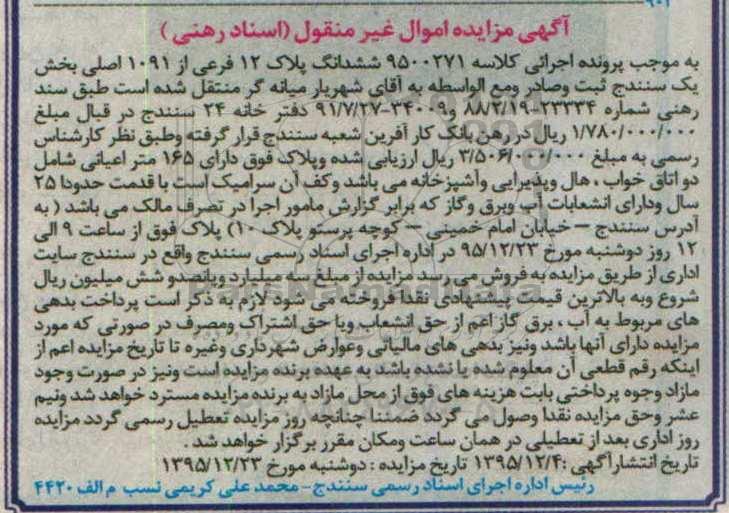 آگهی مزایده اموال غیر منقول (اسناد رهنی)
به موجب پرونده اجرائی کلاسه ۹۵۰۰۲۷۱ ششدانگ پلاک ۱۲ فرعی از ۱۰۹۱ اصلی بخش
یک سنندج ثبت وصادر ومع الواسطه به آقای شهریار میانه گر منتقل شده است طبق سند
رهنی شماره ۲۳۳۳۴-۸۸/۲/۱۹ و۳۴۰۰۹-۹۱/۷/۲۷ دفتر خانه ۲۴ سنندج در قبال مبلغ
۱/۷۸۰/۰۰۰/۰۰۰ ریال در رهن بانک کار آفرین شعبه سنندج قرار گرفته وطبق نظر کارشناس
رسمی به مبلغ ۳/۵۰۶/۰۰۰/۰۰۰ ریال ارزیابی شده وپلاک فوق دارای ۱۶۵ متر اعیانی شامل
دو اتاق خواب ، هال وپذیرایی وآشپزخانه می باشد وکف آن سرامیک است با قدمت حدودا ۲۵
سال ودارای انشعابات آب وبرق وگاز که برابر گزارش مامور اجرا در تصرف مالک می باشد ( به
آدرس سنندج – خیابان امام خمینی – کوچه پرستو پلاک ۱۰) پلاک فوق از ساعت ۹ الی
۱۲ روز دوشنبه مورخ ۹۵/۱۲/۲۳ در اداره اجرای اسناد رسمی سنندج واقع در سنندج سایت
اداری از طریق مزایده به فروش می رسد مزایده از مبلغ سه میلیارد وپانصدو شش میلیون ریال
شروع وبه بالاترین قیمت پیشنهادی نقدا فروخته می شود لازم به ذکر است پرداخت بدهی
های مربوط به آب ، برق گاز اعم از حق انشعاب ویا حق اشتراک ومصرف در صورتی که مورد
مزایده دارای آنها باشد ونیز بدهی های مالیاتی وعوارض شهرداری وغیره تا تاریخ مزایده اعم از
اینکه رقم قطعی آن معلوم شده یا نشده باشد به عهده برنده مزایده است ونیز در صورت وجود
مازاد وجوه پرداختی بابت هزینه های فوق از محل مازاد به برنده مزایده مسترد خواهد شد ونیم
عشر وحق مزایده نقدا وصول می گردد ضمننا چنانچه روز مزایده تعطیل رسمی گردد مزایده
روز اداری بعد از تعطیلی در همان ساعت ومکان مقرر برگزار خواهد شد .
تاریخ انتشارآگهی :۱۳۹۵/۱۲/۴ تاریخ مزایده : دوشنبه مورخ ۱۳۹۵/۱۲/۲۳
رئیس اداره اجرای اسناد رسمی سنندج - محمد علی کریمی نسب م الف ۴۴۲۰